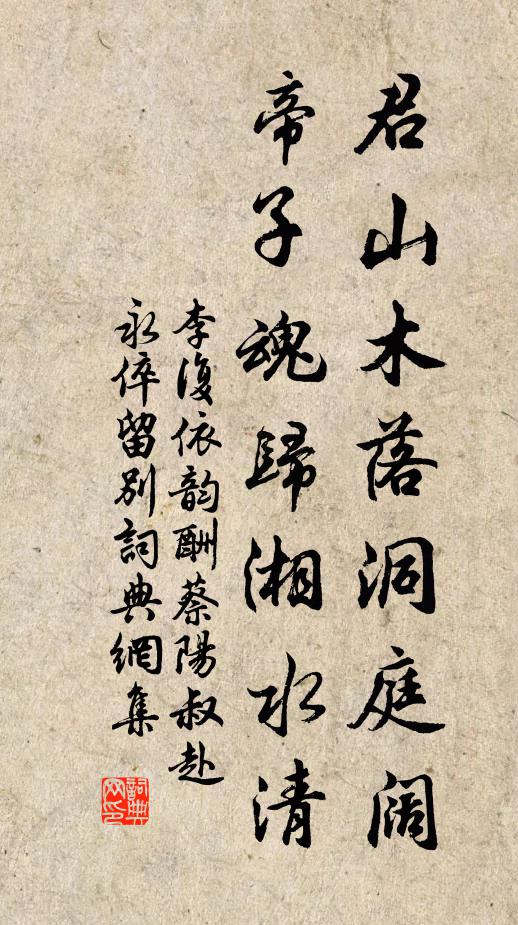 君山木落洞庭阔
帝子魂歸湘水清
李復依韵酬蔡陽叔赴
永倅留別詞典網集
詞典
网印